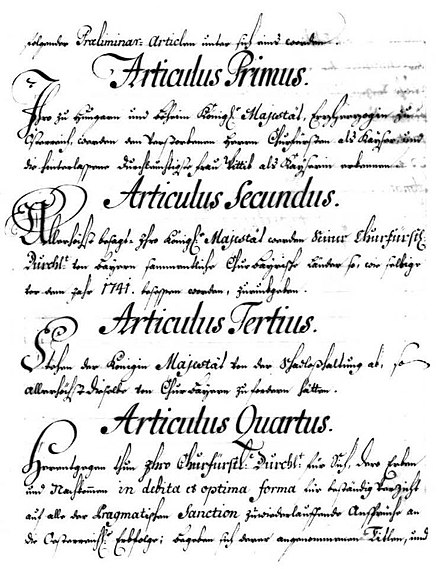 folgender Præliminar: Articlen unter sich eins worden.
Articulus Primus.
Ihro zu Hungarn und böheim Königl: Majestät, Erzherzogin zu
Österreich, werden den Verstorbenen Herrn Churfürsten als Kayser und
die hinterlassene Durchleuchtigste frau Wittib als Kayserin erkennen.
Articulus Secundus.
Allerhöchst besagte Ihro Königl: Majestät werden Seiner Churfürstl:
Durchl: von bayern sammentliche Churbayrische länder so, wie selbige
vor dem Jahr 1741. besessen worden, zurückgeben.
Articulus Tertius.
Stehen der Königin Majestät von der Schadloßhaltung ab, so
allerhöchst dieselbe von Churbayern zu fordern hätten.
Articulus Quartus.
Herentgegen thun Ihro Churfürstl: Durchl: für Sich, Dero Erben
und Nachkommen in debita et optima forma für beständig Verzicht
auf alle der Pragmatischen Sanction zuwiederlauffende Ansprüche an
die Oesterreich: Erbfolge; begeben sich derer angenommenen Titlen, und